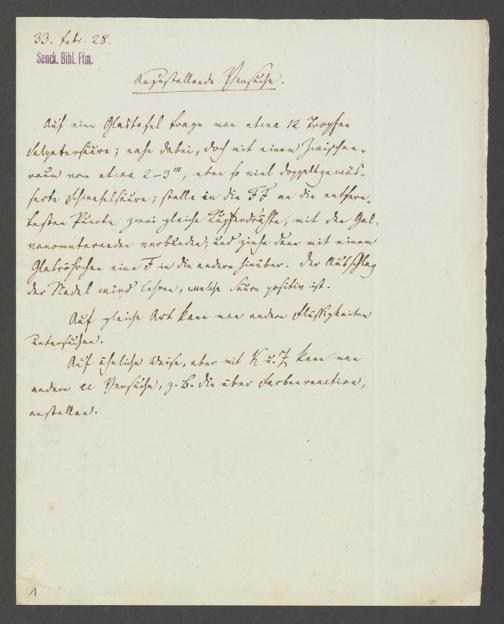 33. Febr. 28.
Senck. Bibl. Ffm.
Anzustellende Versuche.
Auf eine Glastafel trage man etwa 12 Tropfen
Salpetersäure; nahe dabei, doch mit einem Zwischen-
raum von etwa 2–3''', eben so viel doppeltgewäs-
serte Schwefelsäure; stelle in die FF an die entfern-
testen Puncte zwei gleiche Kupferdrähte, mit den Gal-
vanometerenden verbunden, und ziehe dann mit einem
Glasröhrchen eine F in die andere hinüber. Der Ausschlag
der Nadel wird lehren, welche Säure positiv ist.
Auf gleiche Art kann man andere Flüssigkeiten
untersuchen.
Auf ähnliche Weise, aber mit K u. Z kann man
andere Versuche, z. B. die über Farbenreaction,
anstellen.
1